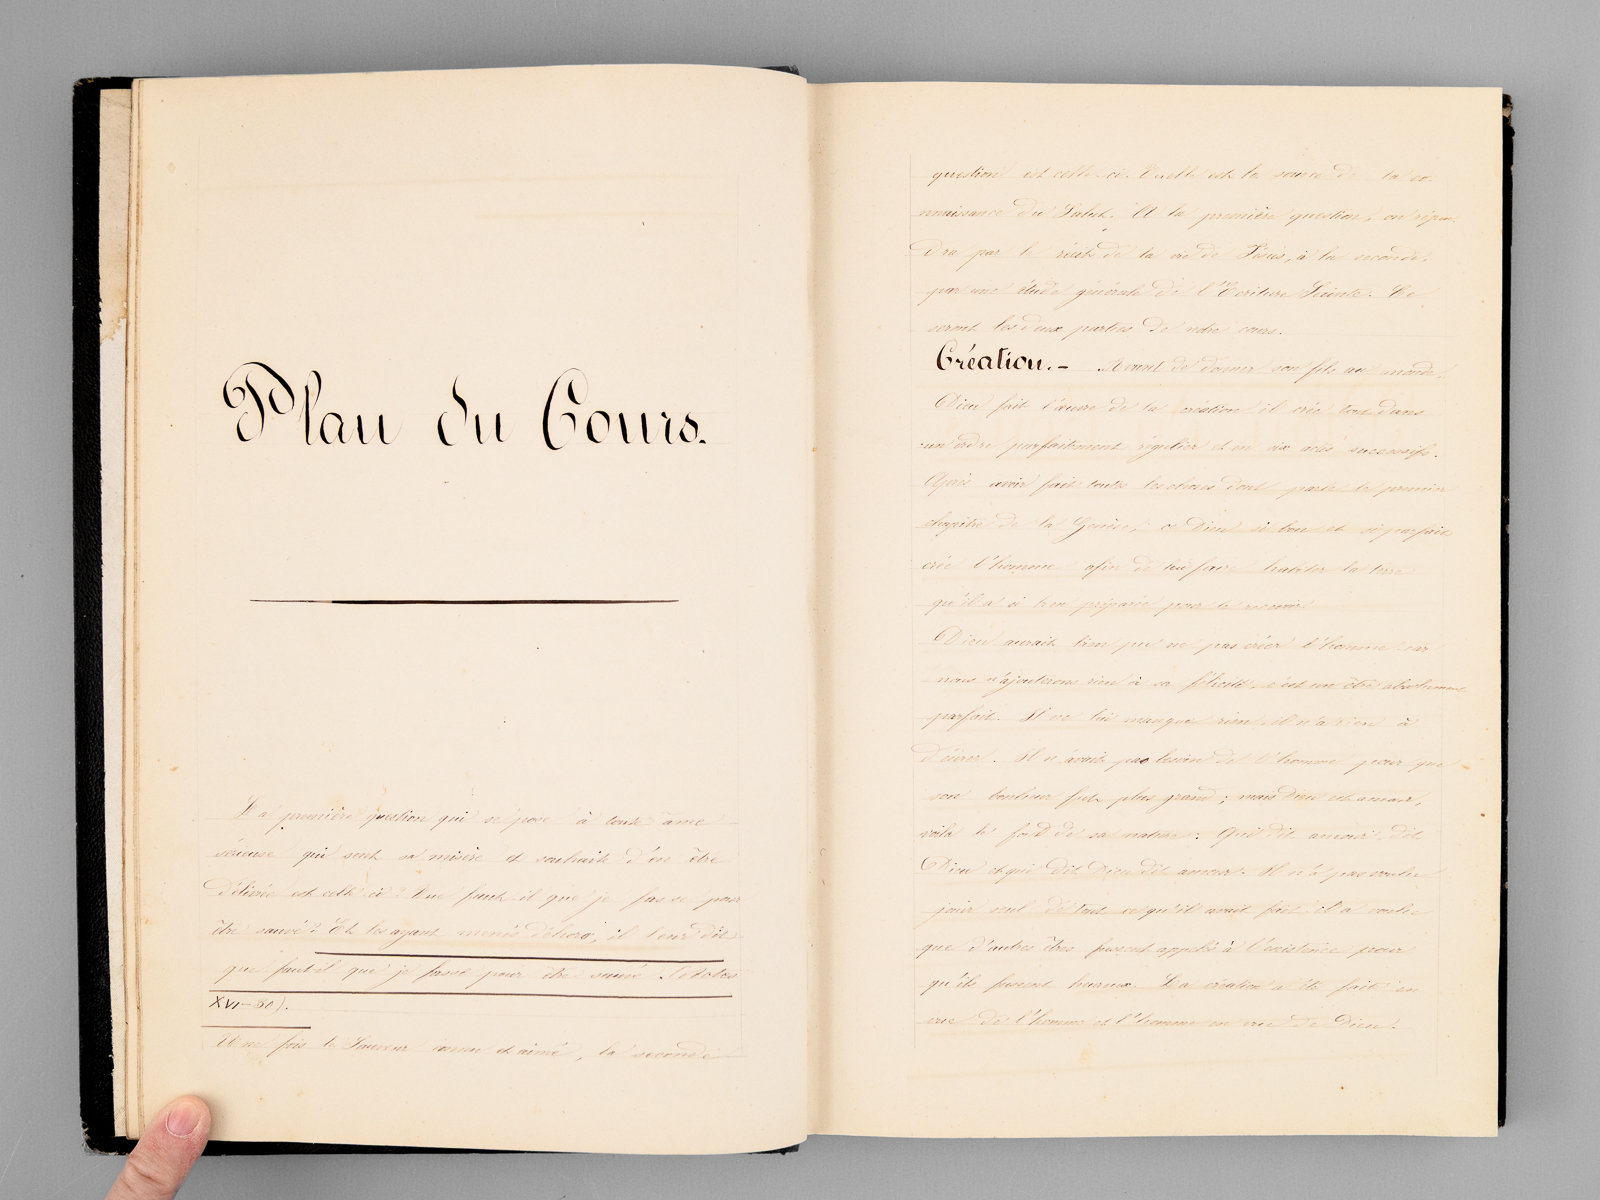 Plan du Cours.
La première question qui se pose à toute âme
sérieuse qui sent sa misère et souhaite d'en être
délivrée est celle ci? Que faut-il que je fasse pour
être sauvé? Et les ayant menés dehors, il leur dit
que faut-il que je fasse pour être sauvé. (Actes
XVI-30).
Une fois le Sauveur connu et aimé, la seconde
question est celle-ci. Quelle est la source de la co-
nnaissance du Salut. A la première question, on répon-
dra par le récit de la vie de Jésus, à la seconde,
par une étude générale de l'Ecriture Sainte. Ce
seront les deux parties de notre cours.
Création.- Avant de donner son fils au monde
Dieu fait l'œuvre de la création il crée tout dans
un ordre parfaitement régulier et en six actes successifs.
Après avoir fait toutes les choses dont parle le premier
chapitre de la Genèse, ce Dieu si bon et si parfait
crée l'homme afin de lui faire habiter la terre
qu'il a si bien préparée pour le recevoir
Dieu aurait bien pu ne pas créer l'homme car
nous n'ajouterons rien à sa félicité, c'est un être absolument
parfait. Il ne lui manque rien, il n'a rien à
désirer. Il n'avait pas besoin de l'homme pour que
son bonheur fut plus grand; mais Dieu est amour,
voilà le fond de sa nature: Qui dit amour dit
Dieu et qui dit Dieu dit amour. Il n'a pas voulu
jouir seul de tout ce qu'il avait fait il a voulu
que d'autres êtres fussent appelés à l'existence pour
qu'ils fussent heureux. La création a été faite en
vue de l'homme et l'homme en vue de Dieu.